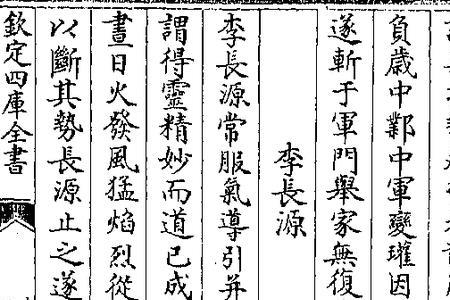 負歲中鄴中軍變瓘因
遂斬于軍門舉家無復
李長源
李長源常服氣導引并
謂得靈精妙而道已成
晝日火發風猛焰烈從
以斷其勢長源止之遂
欽定四庫全書